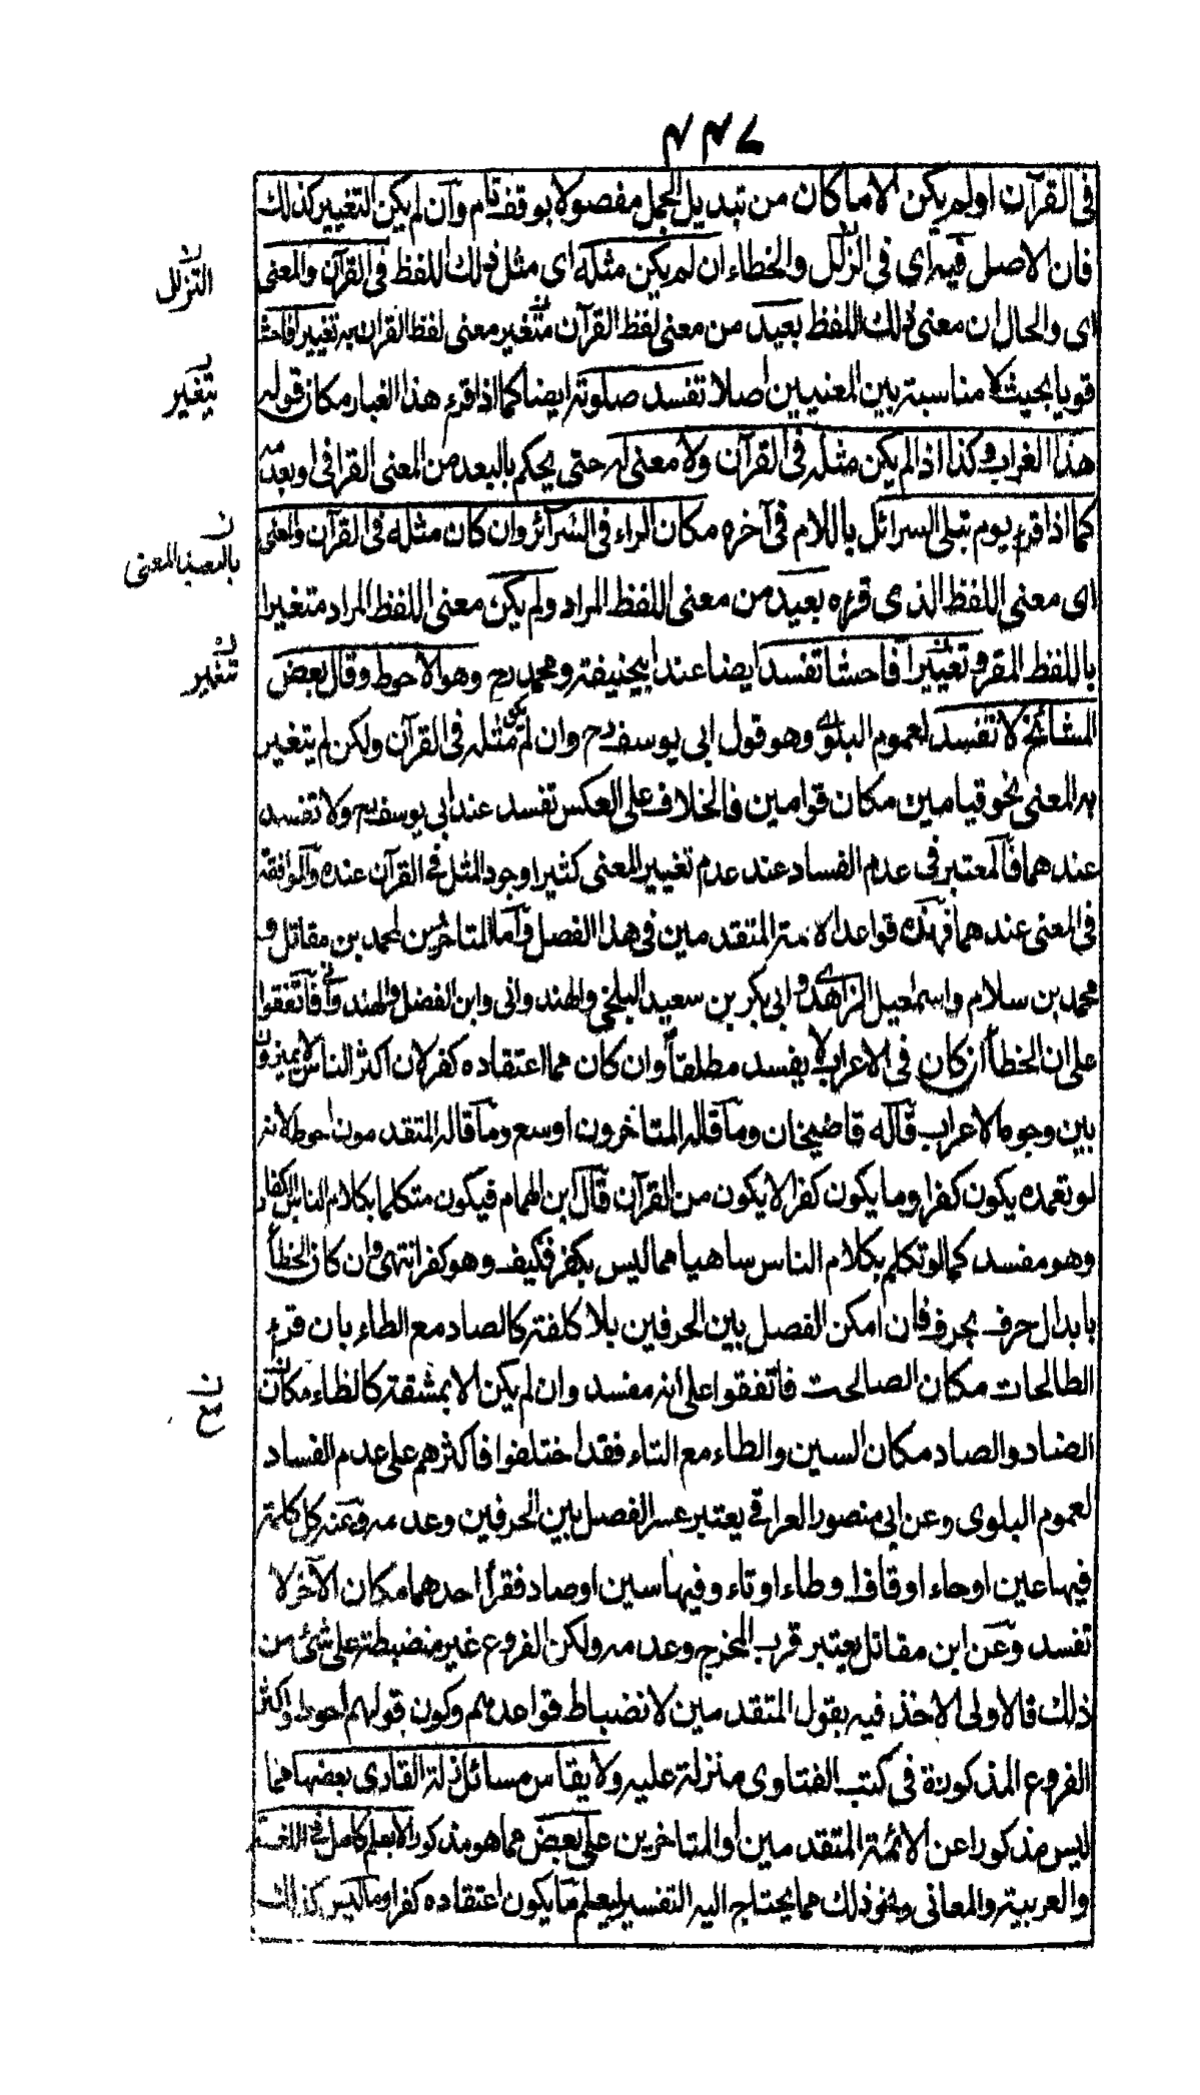 ٤٤٧
فى القرآن اولم يكن الا ما كان من تبديل الجمل مفصولا بوقف تام وان لم يكن التغيير كذلك
فان الاصل فيه اى فى الزلل والخطاء ان لم يكن مثله اى مثل ذلك اللفظ فى القرآن والمعنى
التزلل
اى والحال ان معنى ذلك اللفظ بعيد من معنى لفظ القرآن متغير معنى لفظ القران به تغييرا فاحشا
قويا بحيث لا مناسبة بين المعنيين اصلا تفسد صلوته ايضا كما اذا قرء هذا الغبار مكان قوله
يتغير
هذا الغراب وكذا اذا لم يكن مثله فى القرآن ولا معنى له حتى يحكم بالبعد من المعنى القرانى او بعدمه
كما اذا قرء يوم تبلى السرائل باللام فى آخره مكان الراء فى السرآئر وان كان مثله فى القرآن والمعنى
بالمعنى
اى معنى اللفظ الذى قرءه بعيد من معنى اللفظ المراد ولم يكن معنى اللفظ المراد متغيرا
باللفظ المقرو تغييرا فاحشا تفسد ايضا عند ابيحنيفة ومحمد رح وهو الاحوط وقال بعض
تغير
المشائخ لا تفسد لعموم البلوى وهو قول ابى يوسف رح وان لم يكن مثله فى القرآن ولكن لم يتغير
به المعنى نحو قيامين مكان قوامين فالخلاف على العكس تفسد عند ابى يوسف رح ولا تفسد
عندهما فالمعتبر فى عدم الفساد عند عدم تغيير المعنى كثيرا وجود المثل فى القرآن عنده والموافقة
فى المعنى عندهما فهذه قواعد الائمة المتقدمين فى هذا الفصل واما المتاخرين لمحمد بن مقاتل و
محمد بن سلام واسمعيل الزاهدى وابى بكر بن سعيد البلخى والهندوانى وابن الفضل والهندوانى فاتفقوا
على ان الخطأ ان كان فى الاعراب لا يفسد مطلقا وان كان مما اعتقاده كفر لان اكثر الناس لا يميزون
بين وجوه الاعراب قاله قاضيخان وما قاله المتاخرون اوسع وما قاله المتقدمون احوط لانه
لو تعمده يكون كفرا وما يكون كفرا لا يكون من القرآن قال ابن الهمام فيكون متكلما بكلام الناس الكفار
وهو مفسد كما لو تكلم بكلام الناس ساهيا مما ليس بكفر فكيف وهو كفر انتهى وان كان الخطأ
بابدال حرف بحرف فان امكن الفصل بين الحرفين بلا كلفة كالصاد مع الطاء بان قرء
الطالحات مكان الصالحت فاتفقوا على انه مفسد وان لم يكن الا بمشقة كالظاء مكان
مع
الضاد والصاد مكان السين والطاء مع التاء فقد اختلفوا فاكثرهم على عدم الفساد
لعموم البلوى وعن ابى منصور العراقى يعتبر عسر الفصل بين الحرفين وعدمه وعنه كل كلمة
فيها عين او حاء او قاف او طاء او تاء وفيها سين او صاد فقرأ احدهما مكان الآخر لا
تفسد وعن ابن مقاتل يعتبر قرب المخرج وعدمه ولكن الفروع غير منضبطة على شئ من
ذلك فالاولى الاخذ فيه بقول المتقدمين لانضباط قواعدهم وكون قولهم احوط واكثر
الفروع المذكورة فى كتب الفتاوى منزلة عليه ولا يقاس مسائل زلة القارى بعضها مما
ليس مذكورا عن الائمة المتقدمين او المتاخرين على بعض مما هو مذكور الا بعلم كامل فى اللغة
والعربية والمعانى ونحو ذلك مما يحتاج اليه التفسير ليعلم ما يكون اعتقاده كفرا وما ليس كذلك